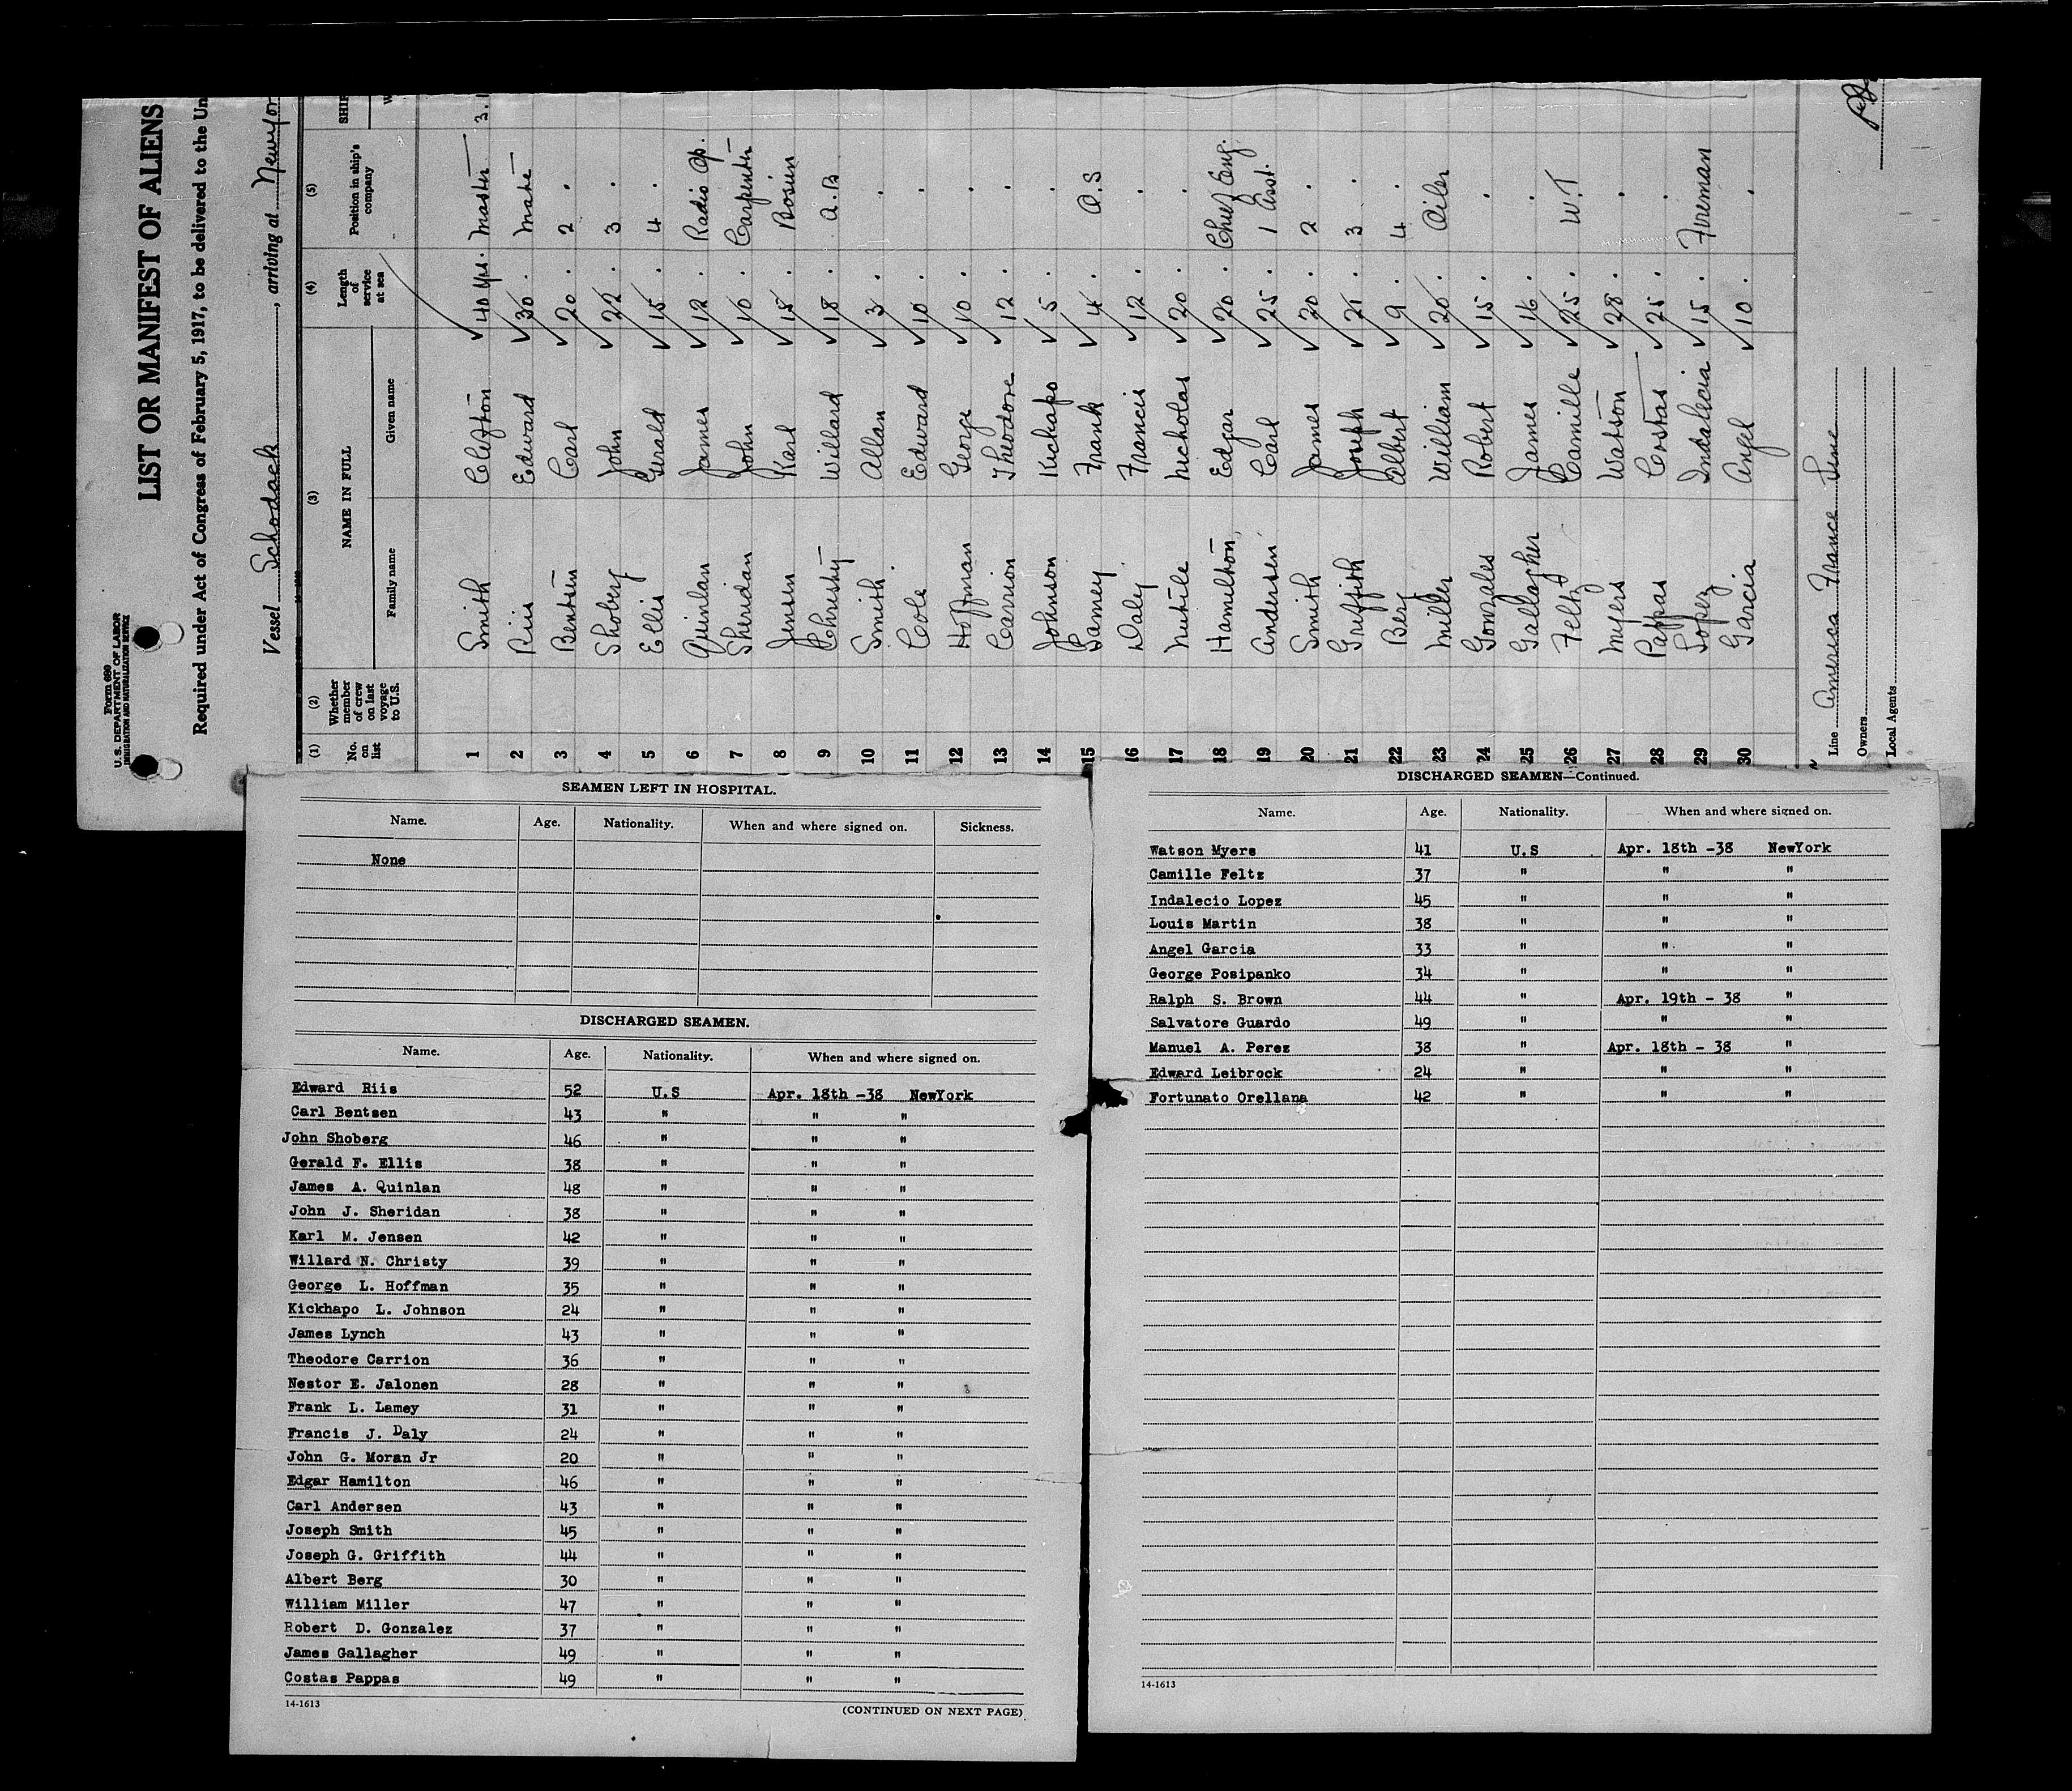 Form 680
U. S. DEPARTMENT OF LABOR
IMMIGRATION AND NATURALIZATION SERVICE
LIST OR MANIFEST OF ALIENS
Required under Act of Congress of February 5, 1917, to be delivered to the Un
Vessel Schodack, arriving at NewYor
(1) (2) (3) (4) (5)
No. on list Whether member of crew on last voyage to U.S. NAME IN FULL Family name Given name Length of service at sea Position in ship's company SHIP
1 Smith Clifton 40 yrs. Master 3.
2 Riis Edward 30 . Mate
3 Bentsen Carl 20 . 2 .
4 Shoberg John 22 . 3 .
5 Ellis Gerald 15 . 4 .
6 Quinlan James 12 . Radio Op.
7 Sheridan John 10 . Carpenter
8 Jensen Karl 18 . Bosun
9 Christy Willard 18 . A.B
10 Smith Allan 3 . .
11 Cole Edward 10 . .
12 Hoffman George 10 . .
13 Carrion Theodore 12 . .
14 Johnson Kickapo 5 . .
15 Lamey Frank 4 . O.S
16 Daly Francis 12 . .
17 Nutile Nicholas 20 . .
18 Hamilton Edgar 20 . Chief Eng.
19 Andersen Carl 25 . 1 Asst.
20 Smith James 20 . 2 .
21 Griffith Joseph 21 . 3 .
22 Berg Albert 9 . 4 .
23 Miller William 20 . Oiler
24 Gonzales Robert 15 . .
25 Gallagher James 16 . .
26 Feltz Camille 25 . W.T
27 Myers Watson 28 . .
28 Pappas Costas 25 . .
29 Lopez Indalecia 15 . Fireman
30 Garcia Angel 10 . .
Line America France Line
Owners
Local Agents
SEAMEN LEFT IN HOSPITAL.
Name. Age. Nationality. When and where signed on. Sickness.
None
DISCHARGED SEAMEN.
Name. Age. Nationality. When and where signed on.
Edward Riis 52 U.S Apr. 18th -38 NewYork
Carl Bentsen 43 " " "
John Shoberg 46 " " "
Gerald F. Ellis 38 " " "
James A. Quinlan 48 " " "
John J. Sheridan 38 " " "
Karl M. Jensen 42 " " "
Willard N. Christy 39 " " "
George L. Hoffman 35 " " "
Kickhapo L. Johnson 24 " " "
James Lynch 43 " " "
Theodore Carrion 36 " " "
Nestor E. Jalonen 28 " " "
Frank L. Lamey 31 " " "
Francis J. Daly 24 " " "
John G. Moran Jr 20 " " "
Edgar Hamilton 46 " " "
Carl Andersen 43 " " "
Joseph Smith 45 " " "
Joseph G. Griffith 44 " " "
Albert Berg 30 " " "
William Miller 47 " " "
Robert D. Gonzalez 37 " " "
James Gallagher 49 " " "
Costas Pappas 49 " " "
14-1613
(CONTINUED ON NEXT PAGE)
DISCHARGED SEAMEN—Continued.
Name. Age. Nationality. When and where signed on.
Watson Myers 41 U.S Apr. 18th -38 NewYork
Camille Feltz 37 " " "
Indalecio Lopez 45 " " "
Louis Martin 38 " " "
Angel Garcia 33 " " "
George Posipanko 34 " " "
Ralph S. Brown 44 " Apr. 19th - 38 "
Salvatore Guardo 49 " " "
Manuel A. Perez 38 " Apr. 18th - 38 "
Edward Leibrock 24 " " "
Fortunato Orellana 42 " " "
14-1613